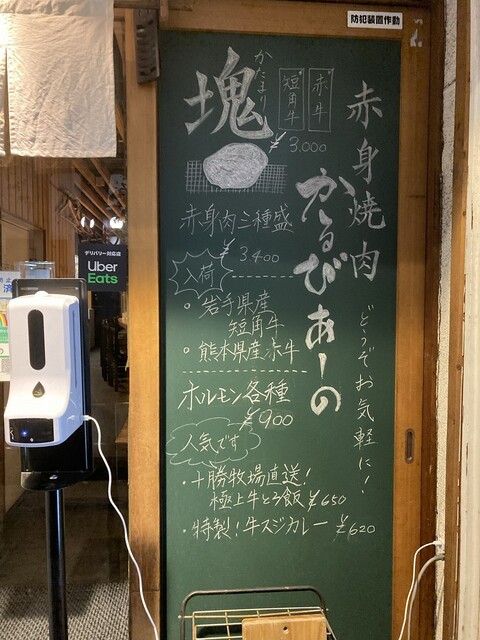 防犯装置作動
赤身焼肉
かるびあーの
どうぞお気軽に!
赤牛
短角牛
かたまり
塊
¥3,000
赤身肉三種盛
¥3,400
入荷
・岩手県産
短角牛
・熊本県産赤牛
ホルモン各種
¥900
人気です
・十勝牧場直送!
極上牛とろ飯 ¥650
・特製!牛スジカレー ¥620
デリバリー対応店
Uber
Eats